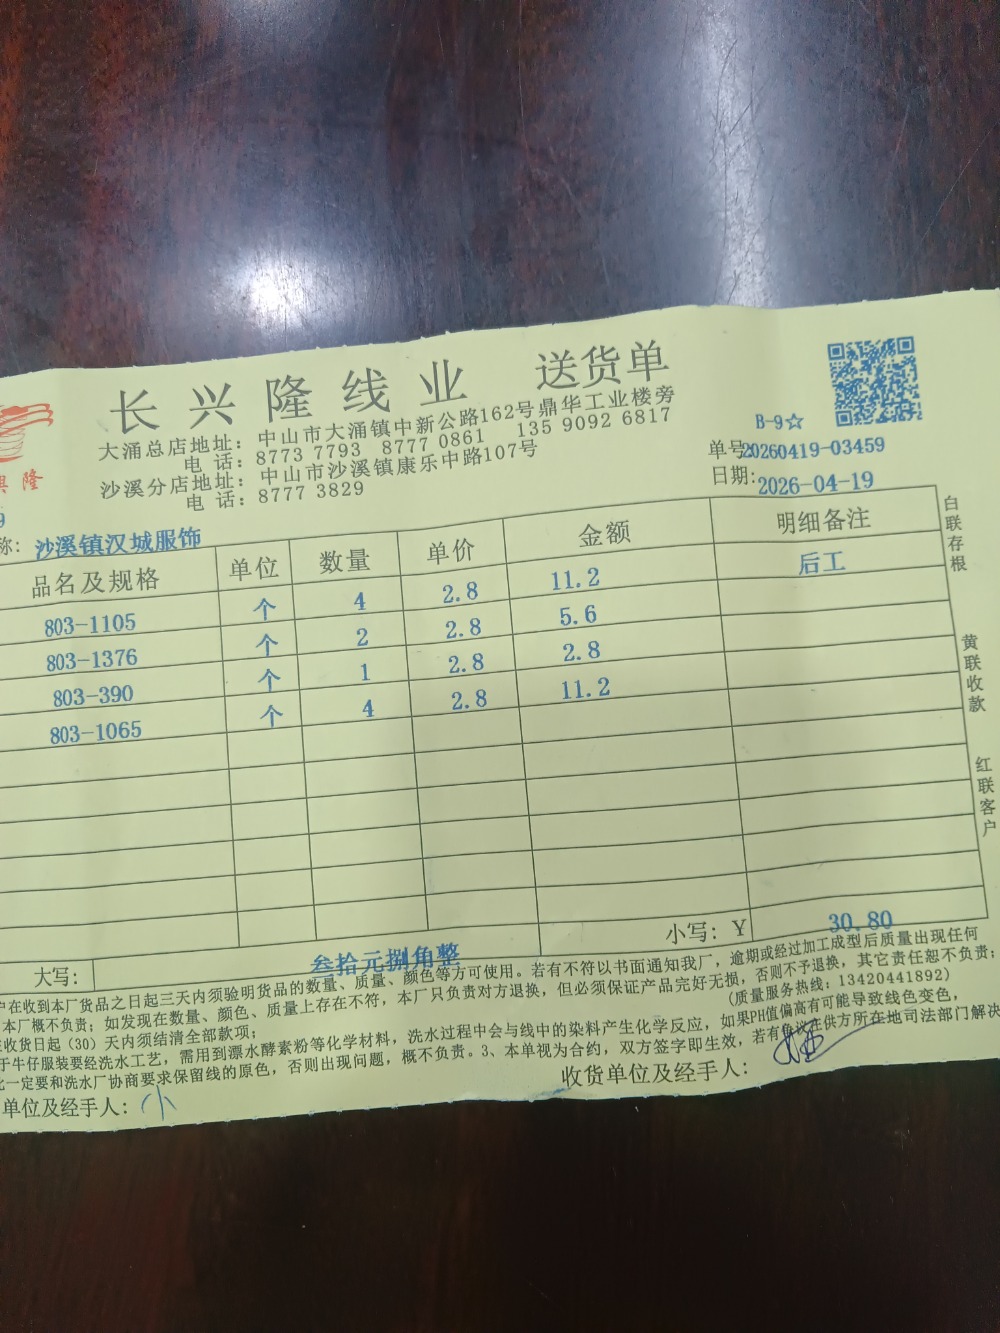 长兴隆线业 送货单
大涌总店地址：中山市大涌镇中新公路162号鼎华工业楼旁
电 话：8773 7793 8777 0861 135 9092 6817
沙溪分店地址：中山市沙溪镇康乐中路107号
电 话：8777 3829
隆
B-9☆
单号20260419-03459
日期：2026-04-19
9
称：沙溪镇汉城服饰
品名及规格 单位 数量 单价 金额 明细备注
803-1105 个 4 2.8 11.2 后工
803-1376 个 2 2.8 5.6
803-390 个 1 2.8 2.8
803-1065 个 4 2.8 11.2
小写：￥ 30.80
大写： 叁拾元捌角整
白联存根
黄联收款
红联客户
户在收到本厂货品之日起三天内须验明货品的数量、质量、颜色等方可使用。若有不符以书面通知我厂，逾期或经过加工成型后质量出现任何
本厂概不负责；如发现在数量、颜色、质量上存在不符，本厂只负责对方退换，但必须保证产品完好无损，否则不予退换，其它责任恕不负责；
收货日起（30）天内须结清全部款项； （质量服务热线：13420441892）
于牛仔服装要经洗水工艺，需用到漂水酵素粉等化学材料，洗水过程中会与线中的染料产生化学反应，如果PH值偏高有可能导致线色变色，
一定要和洗水厂协商要求保留线的原色，否则出现问题，概不负责。3、本单视为合约，双方签字即生效，若有争议在供方所在地司法部门解决
单位及经手人：小
收货单位及经手人：